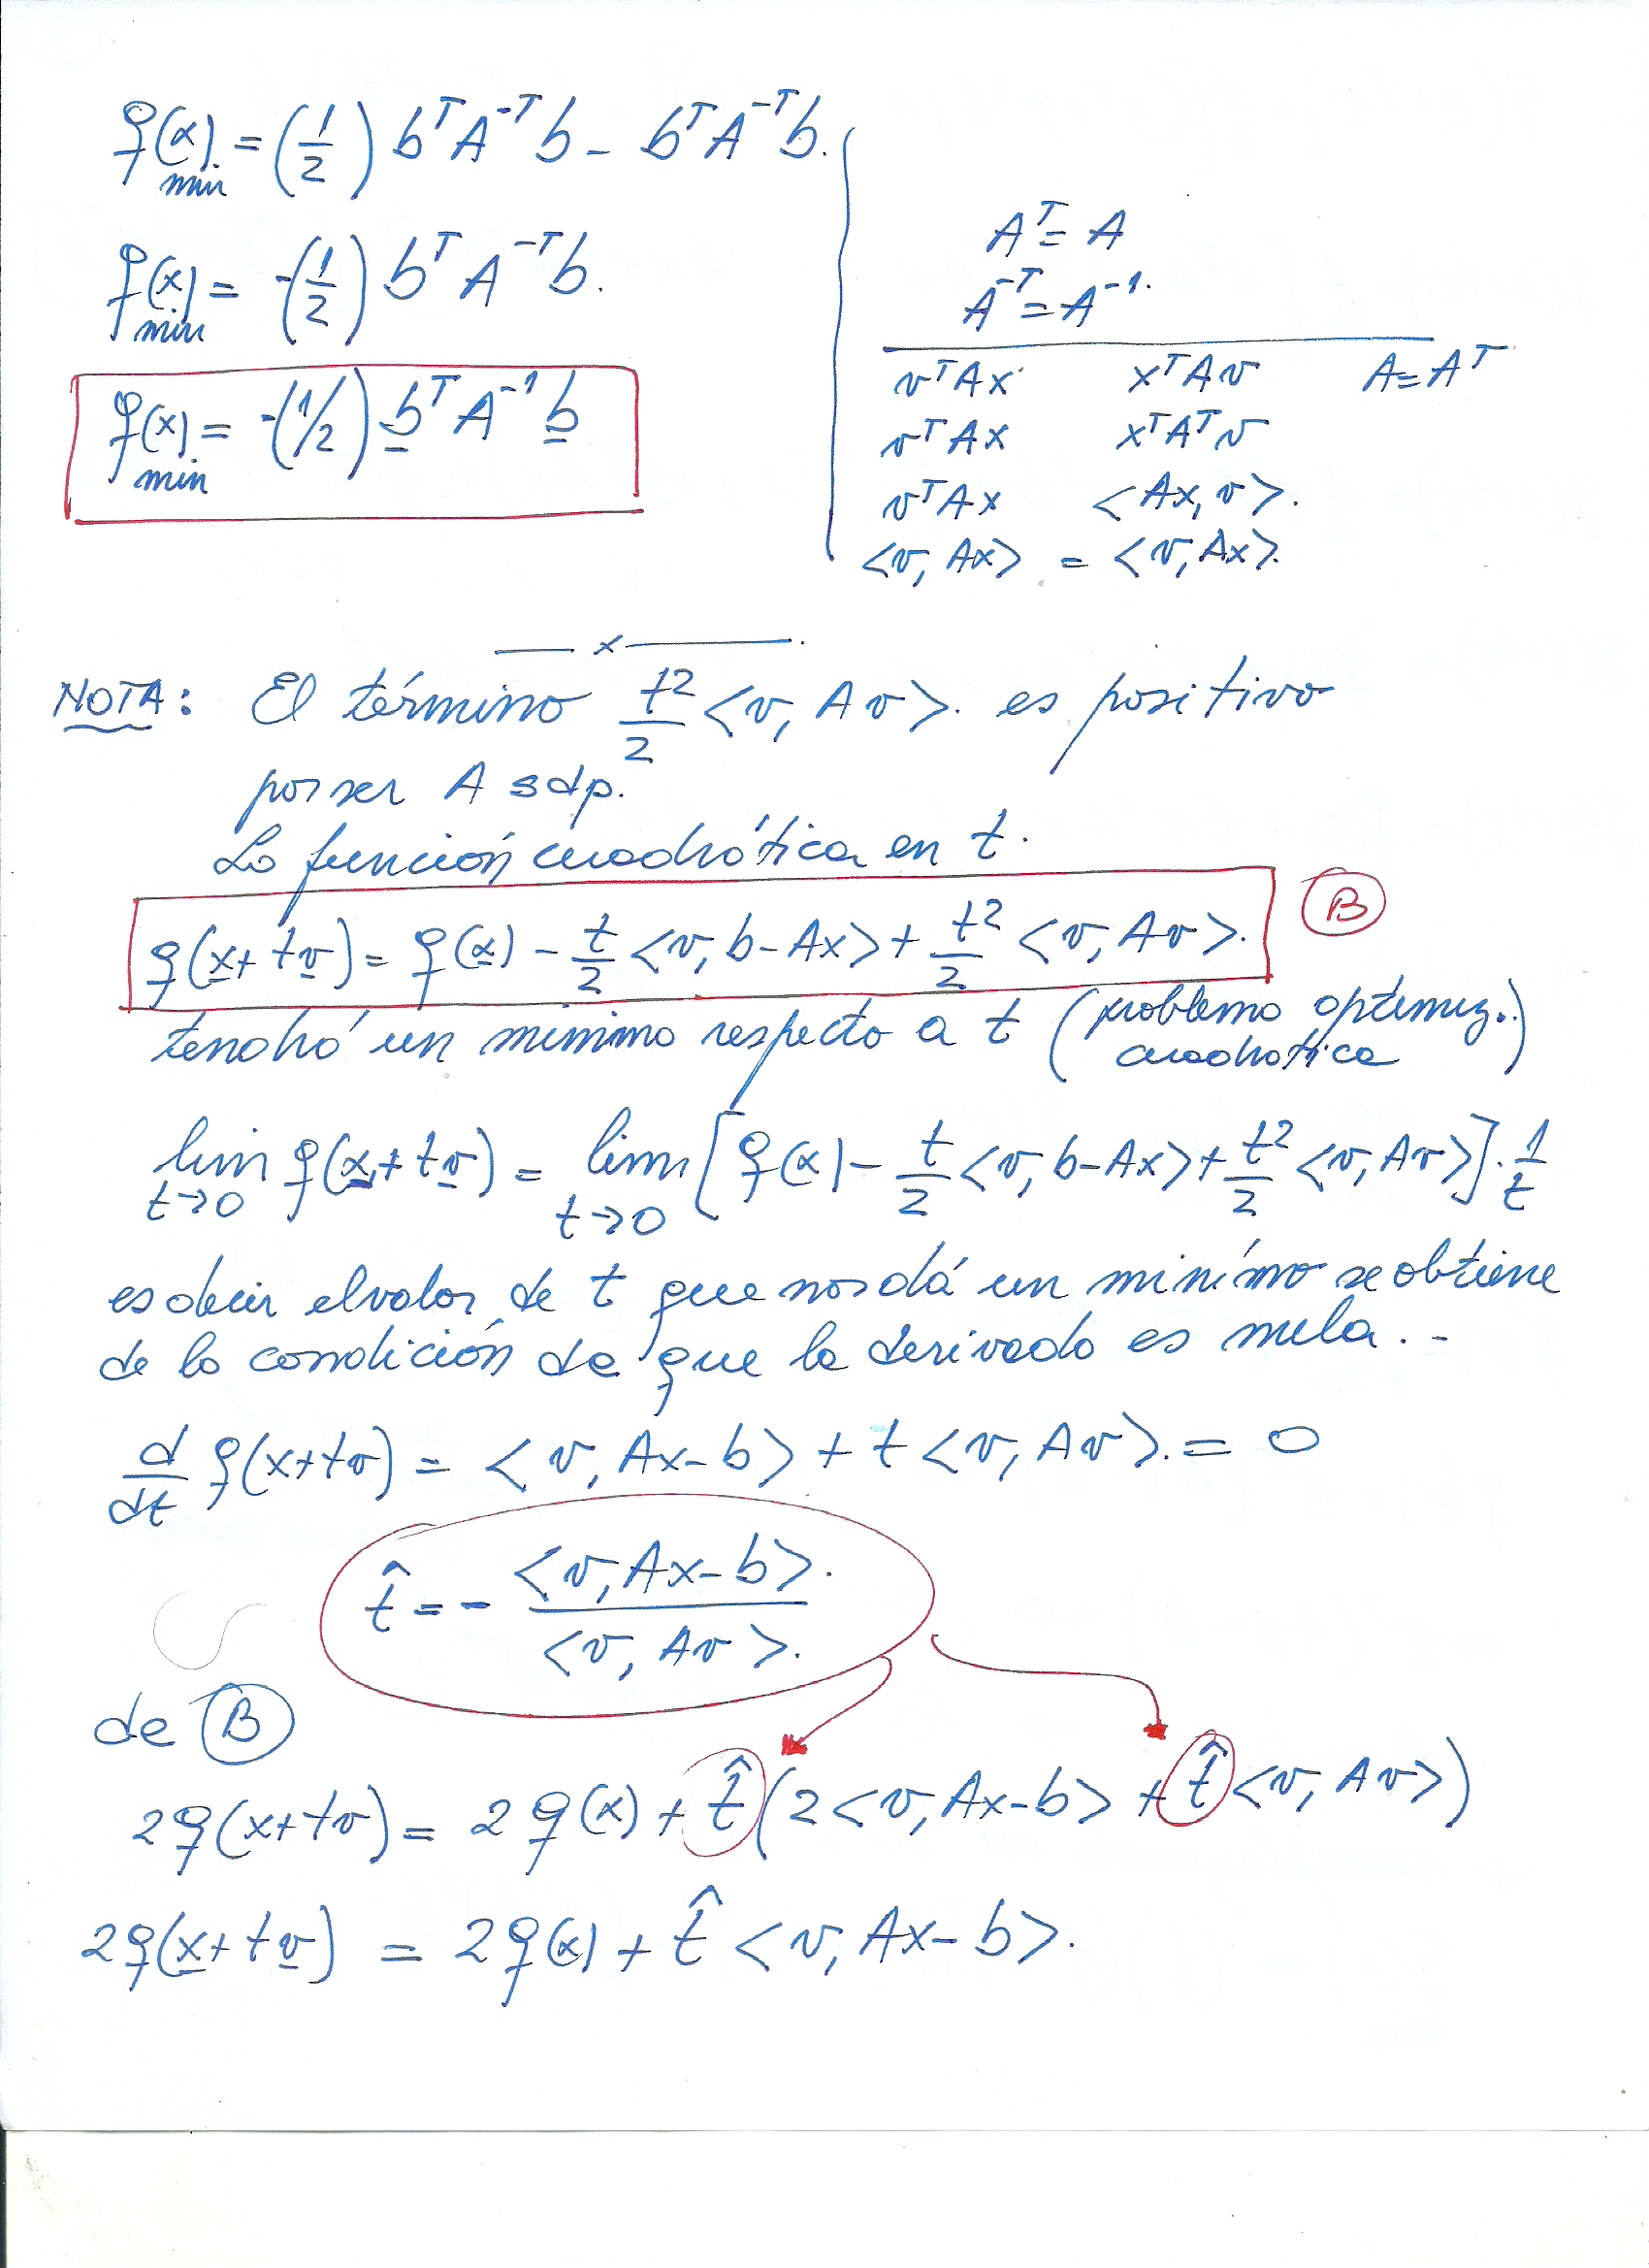 q(x)min = (1/2) bᵀA⁻ᵀb - bᵀA⁻ᵀb.
q(x)min = -(1/2) bᵀA⁻ᵀb.
q(x)min = -(1/2) bᵀA⁻¹b
Aᵀ = A
A⁻ᵀ = A⁻¹.
vᵀAx xᵀAv A = Aᵀ
vᵀAx xᵀAᵀv
vᵀAx <Ax, v>.
<v, Ax> = <v, Ax>.
x
NOTA: El término t²/2 <v, Av>. es positivo
por ser A sdp.
La función cuadrática en t.
q(x+tv) = q(x) - t/2 <v, b-Ax> + t²/2 <v, Av>. B
tendrá un mínimo respecto a t (problema optimiz.. cuadrática)
lim t→0 q(x+tv) = lim t→0 [q(x) - t/2 <v, b-Ax> + t²/2 <v, Av>] . 1/t
es decir el valor de t que nos dá un minímo se obtiene
de la condición de que la derivada es nula. . -
d/dt q(x+tv) = <v, Ax-b> + t <v, Av>. = 0
t̂ = - <v, Ax-b>. / <v, Av>.
de B
2q(x+tv) = 2q(x) + t̂ (2<v, Ax-b> + t̂ <v, Av>)
2q(x+tv) = 2q(x) + t̂ <v, Ax-b>.